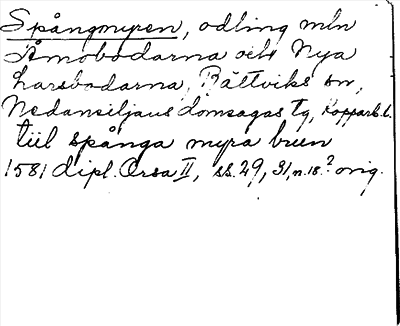 Spångmyren, odling mln
Åmobodarna och Nya
Larsbodarna, Rättviks sn,
Nedansiljans domsagas tg, Kopparb. l.
tiil spånga myra bum
1581 dipl. Orsa II, ss. 29, 31, n. 18? orig.